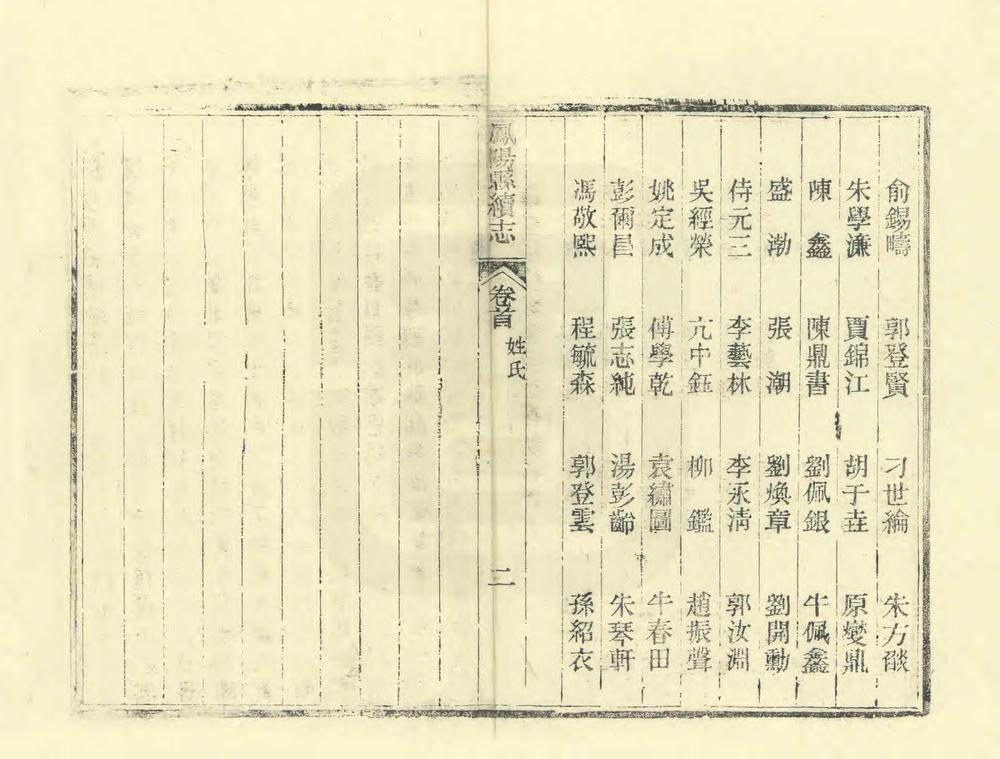 俞錫疇　郭登賢　刁世綸　朱方燄
朱學濂　賈錦江　胡于垚　原燮鼎
陳　鑫　陳鼎書　劉佩銀　牛佩鑫
盛　渤　張　潮　劉煥章　劉開勳
侍元三　李藝林　李永清　郭汝淵
吳經榮　亢中鈺　柳　鑑　趙振聲
姚定成　傅學乾　袁繡圖　牛春田
彭爾昌　張志純　湯彭齡　朱琴軒
馮敬熙　程毓森　郭登雲　孫紹衣
鳳陽縣續志　卷首　姓氏　二